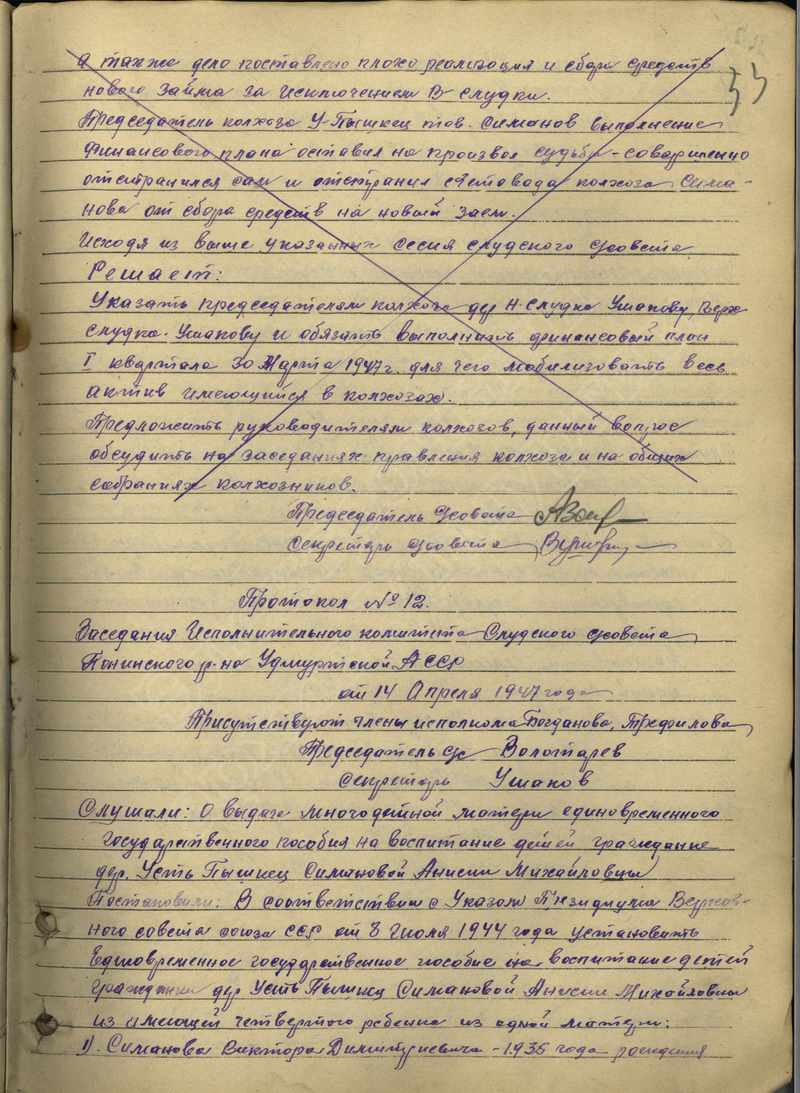 33
а также дело поставлено плохо реализация и сбора средств
нового займа за исключением В слудки.
Председатель колхоза У-Пышкец тов. Симанов выполнение
финансового плана оставил на произвол судьбы - совершенно
отстранился сам и отстранил счетовода колхоза Сима-
нова от сбора средств на новый заем.
Исходя из выше указанных Сесия слудского с/совета
Решает:
Указать председателям колхоза дер Н-Слудка Ушакову, Верх
слудка-Ушакову и обязать выполнить финансовый план
I квартала 30 Марта 1947 г. для чего мобилизовать весь
актив имеющийся в колхозах.
Предложить руководителям колхозов, данный вопрос
обсудить на заседаниях правления колхоза и на общих
собраниях колхозников.
Председатель с/совета
Секретарь с/совета
Протокол № 12.
Заседания Исполнительного комитета Слудского с/совета
Понинского р-на Удмуртской АССР
от 14 Апреля 1947 года
Присутствуют члены исполкома Богданова, Трефилова
Председатель с/с Волотарев
Секретарь Ушаков
Слушали: О выдаче многодетной матери единовременного
государственного пособия на воспитание детей гражданке
дер. Усть Пышкец Симановой Анисии Михайловны
Постановили: В соответствии с Указом Президиума Верхов-
ного совета союза ССР от 8 Июля 1944 года установить
Единовременное государственное пособие на воспитание детей
гражданки дер Усть Пышкец Симановой Анисии Михайловны
из имеющей четвертого ребенка из одной матери:
1). Симанова Виктора Димитриевича - 1935 года рождения